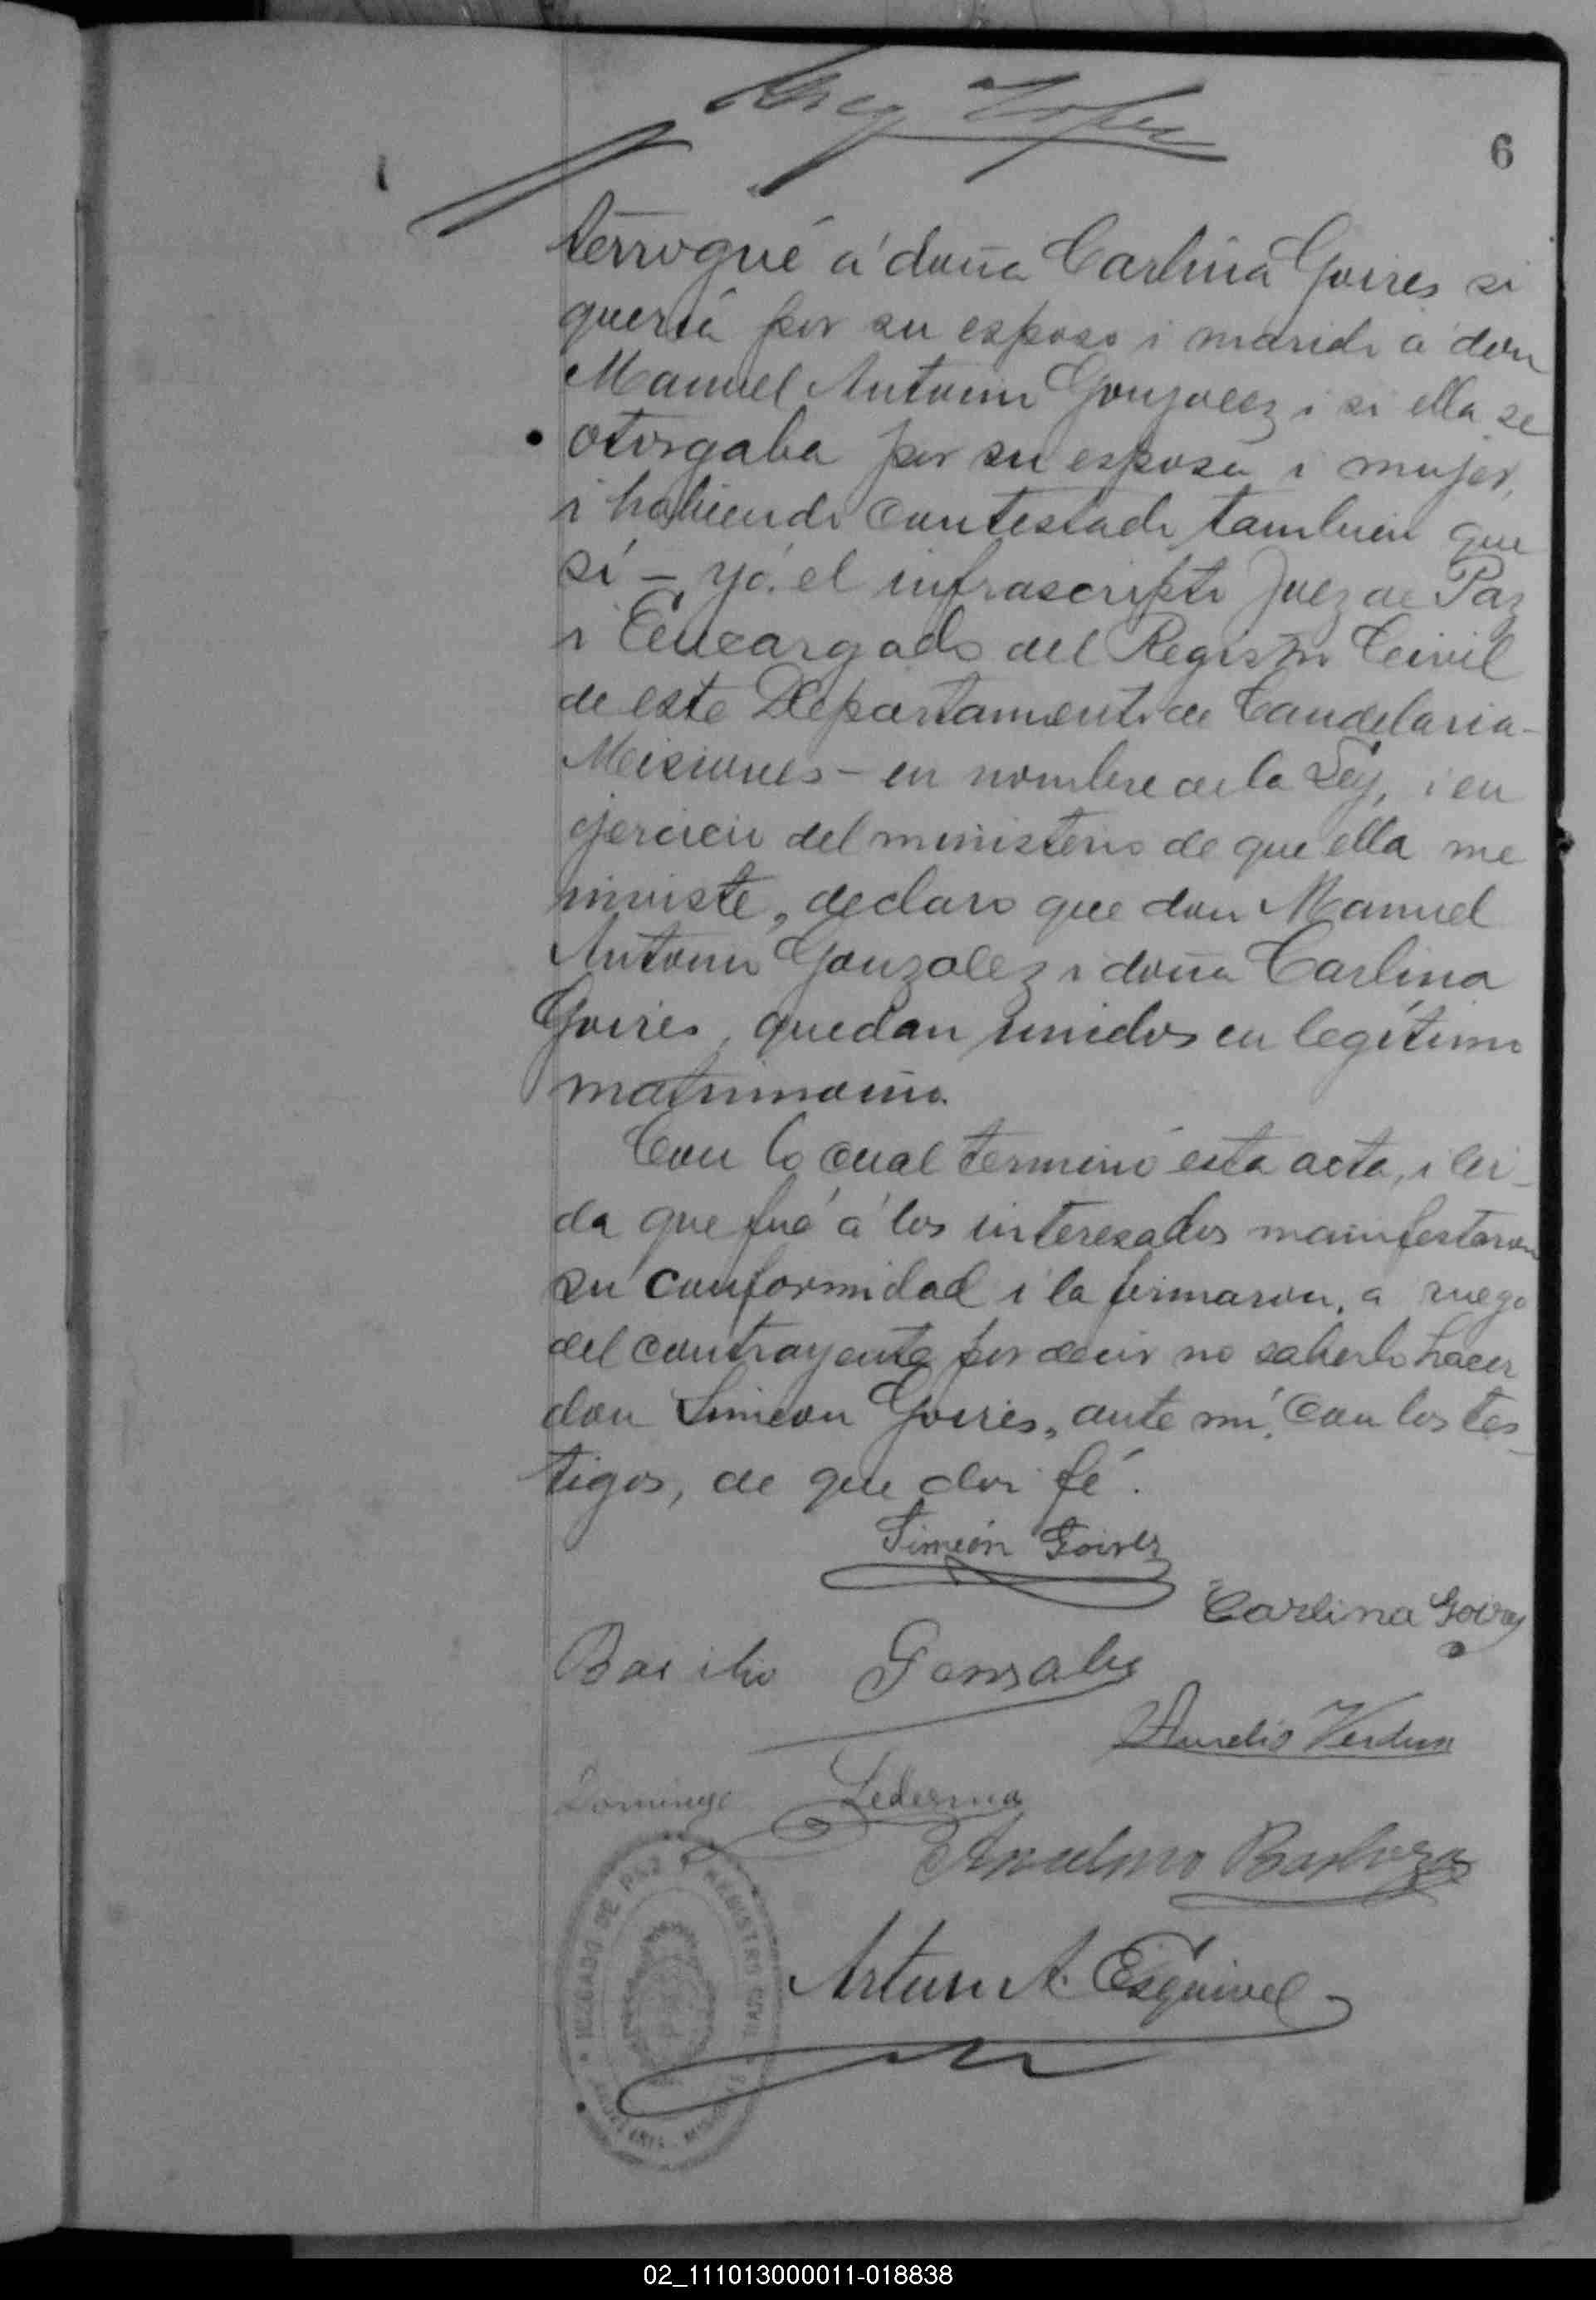 6
terrogué á doña Carlina Goires si
quería por su esposo i marido á don
Manuel Antonio Gonzalez i si ella se
otorgaba por su esposa i mujer,
i habiendo contestado tambien que
sí – yó el infrascripto Juez de Paz
i Encargado del Registro Civil
de este Departamento de Candelaria-
Misiones – en nombre de la Ley, i en
ejercicio del ministerio de que ella me
inviste, declaro que don Manuel
Antonio Gonzalez i doña Carlina
Goires, quedan unidos en legítimo
matrimonio.
Con lo cual terminó esta acta, i lei-
da que fué á los interesados manifestaron
su conformidad i la firmaron, a ruego
del contrayente por decir no saberlo hacer
don Simeon Goires, ante mí, con los tes-
tigos, de que doi fé.
Simeón Goires
Carlina Goires
Basilio Gonzales
Aurelio Verdun
Domingo Ledesma
Anselmo Barboza
JUZGADO DE PAZ Y REGISTRO CIVIL
CANDELARIA - MISIONES
Arturo A. Esquivel
02_111013000011-018838